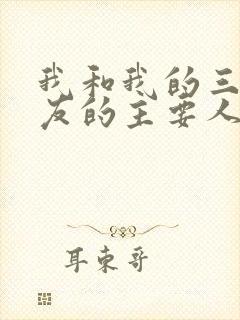 我和我的三
友的主要人
耳东哥